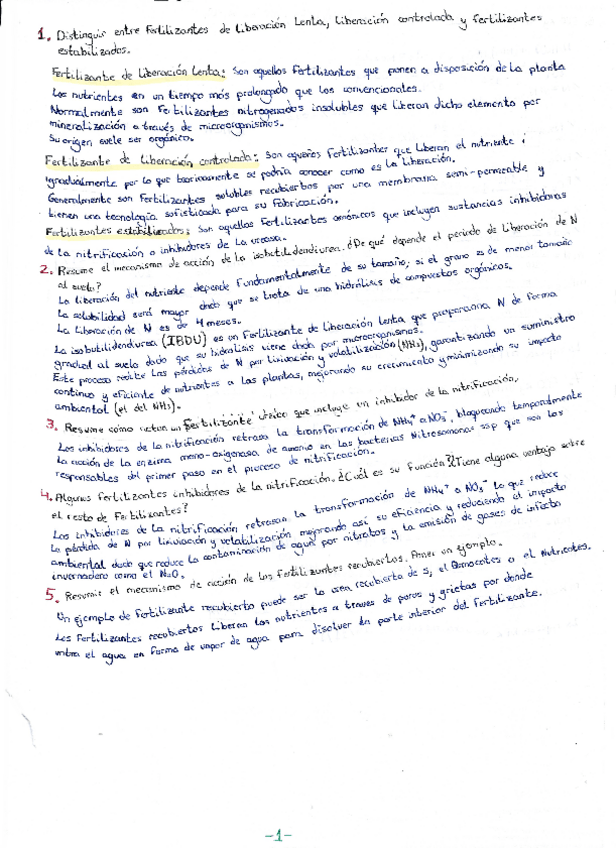 1. Distinguir entre Fertilizantes de Liberación Lenta, Liberación controlada y fertilizantes
estabilizados.
Fertilizante de Liberación Lenta: Son aquellos Fertilizantes que ponen a disposición de la planta
los nutrientes en un tiempo más prolongado que los convencionales.
Normalmente son Fertilizantes nitrogenados insolubles que liberan dicho elemento por
mineralización a través de microorganismos.
Su origen suele ser orgánico.
Fertilizante de Liberación controlada: Son aquellos Fertilizantes que liberan el nutriente
gradualmente por lo que teóricamente se podría conocer como es la liberación.
Generalmente son Fertilizantes solubles recubiertos por una membrana semi-permeable y
tienen una tecnología sofisticada para su fabricación.
Fertilizantes estabilizados: Son aquellos Fertilizantes amónicos que incluyen sustancias inhibidoras
de la nitrificación o inhibidores de la ureasa.
2. Resume el mecanismo de acción de la isobutilidendiurea. ¿De qué depende el periodo de liberación de N
al suelo?
La liberación del nutriente depende fundamentalmente de su tamaño; si el grano es de menor tamaño
la solubilidad será mayor dado que se trata de una hidrólisis de compuestos orgánicos.
La liberación de N es de 4 meses.
La isobutilidendiurea (IBDU) es un Fertilizante de liberación lenta que proporciona N de forma
gradual al suelo dado que su hidrólisis viene dada por microorganismos.
Este proceso reduce las pérdidas de N por lixiviación y volatilización (NH₃), garantizando un suministro
continuo y eficiente de nutrientes a las plantas, mejorando su crecimiento y minimizando su impacto
ambiental (el del NH₃).
3. Resume cómo actúa un fertilizante que incluye un inhibidor de la nitrificación.
Los inhibidores de la nitrificación retrasan la transformación de NH₄⁺ a NO₃⁻, bloqueando temporalmente
la acción de la enzima mono-oxigenasa de amonio en las bacterias Nitrosomonas ssp que son las
responsables del primer paso en el proceso de nitrificación.
4. Algunos fertilizantes inhibidores de la nitrificación. ¿Cuál es su función? ¿Tiene alguna ventaja sobre
el resto de Fertilizantes?
Los inhibidores de la nitrificación retrasan la transformación de NH₄⁺ a NO₃⁻ lo que reduce
la pérdida de N por lixiviación y volatilización mejorando así su eficiencia y reduciendo el impacto
ambiental dado que reduce la contaminación de agua por nitratos y la emisión de gases de efecto
invernadero como el N₂O.
5. Resumir el mecanismo de acción de los fertilizantes recubiertos. Poner un ejemplo.
Un ejemplo de fertilizante recubierto puede ser la urea recubierta de S, el Osmocotes o el Nutricotes.
Los Fertilizantes recubiertos liberan los nutrientes a través de poros y grietas por donde
entra el agua en forma de vapor de agua para disolver la parte interior del fertilizante.
-1-